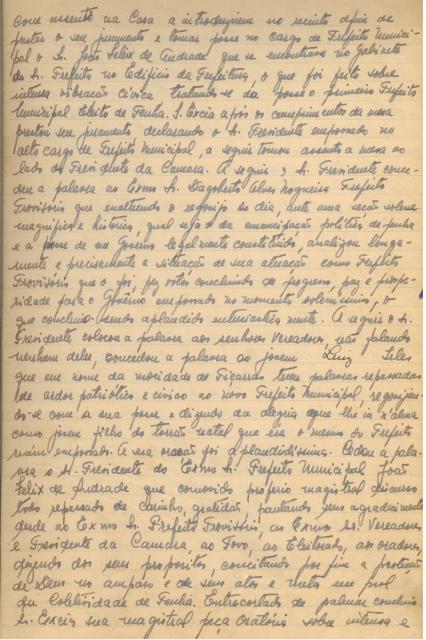 com assento na Casa a introduzirem no recinto afim de
prestar o seu juramento e tomar posse no cargo de Prefeito Munici-
pal o Sr. João Felix de Andrade que se encontrava no Gabinete
do Sr. Prefeito no Edificio da Prefeitura, o que foi feito sobre
intensa vibração cívica tratando-se da posse o primeiro Prefeito
Municipal Eleito de Penha. S. Excia após os cumprimentos da mesa
prestou seu juramento declarando o Sr. Presidente empossado no
alto cargo de Prefeito Municipal, a seguir tomou assento a mesa ao
lado do Presidente da Camara. A seguir o Sr. Presidente conce-
deu a palavra ao Exmo Sr. Dagoberto Alves Nogueira Prefeito
Provisorio que enaltecendo o regosijo do dia, ante uma seção solene
magnifica e historica, qual seja o da emancipação politica de Penha
e a posse de um Governo legalmente constituido, analizou longa-
mente e precisamente a situação de sua atuação como Prefeito
Provisorio que o foi, fez votos concluindo de progresso, paz e prospe-
ridade para o Governo empossado no momento solenissimo, o
que concluiu sendo aplaudido entusiastica mente. A seguir o Sr.
Presidente colocou a palavra aos senhores Vereadores, não falando
nenhum deles, concedeu a palavra ao jovem Luiz Teles
que em nome da mocidade de Piçarras teceu palavras repassadas
de ardor patriótico e civico ao novo Prefeito Municipal, regosijan-
do-se com a sua posse e dizendo da alegria que lhe ia n'alma
como jovem filho do torrão natal que era o mesmo do Prefeito
recem empossado. A sua oração foi aplaudidissima. Cedeu a pala-
vra o Sr. Presidente do Exmo Sr. Prefeito Municipal João
Felix de Andrade que comovido proferio magistral discurso
todo repassado de carinho, gratidão, pautando seus agradecimentos
desde ao Exmo Sr. Prefeito Provisorio, aos Exmos Srs. Vereadores
e Presidente da Camara, ao Povo, ao Eleitorado, aos oradores,
dizendo dos seus propositos, concitando por fim a proteção
de Deus no amparo e de seus atos e luta em prol
da Coletividade de Penha. Entrecortado de palmas concluiu
S. Excia sua magistral peça Oratoria sobre intensa e